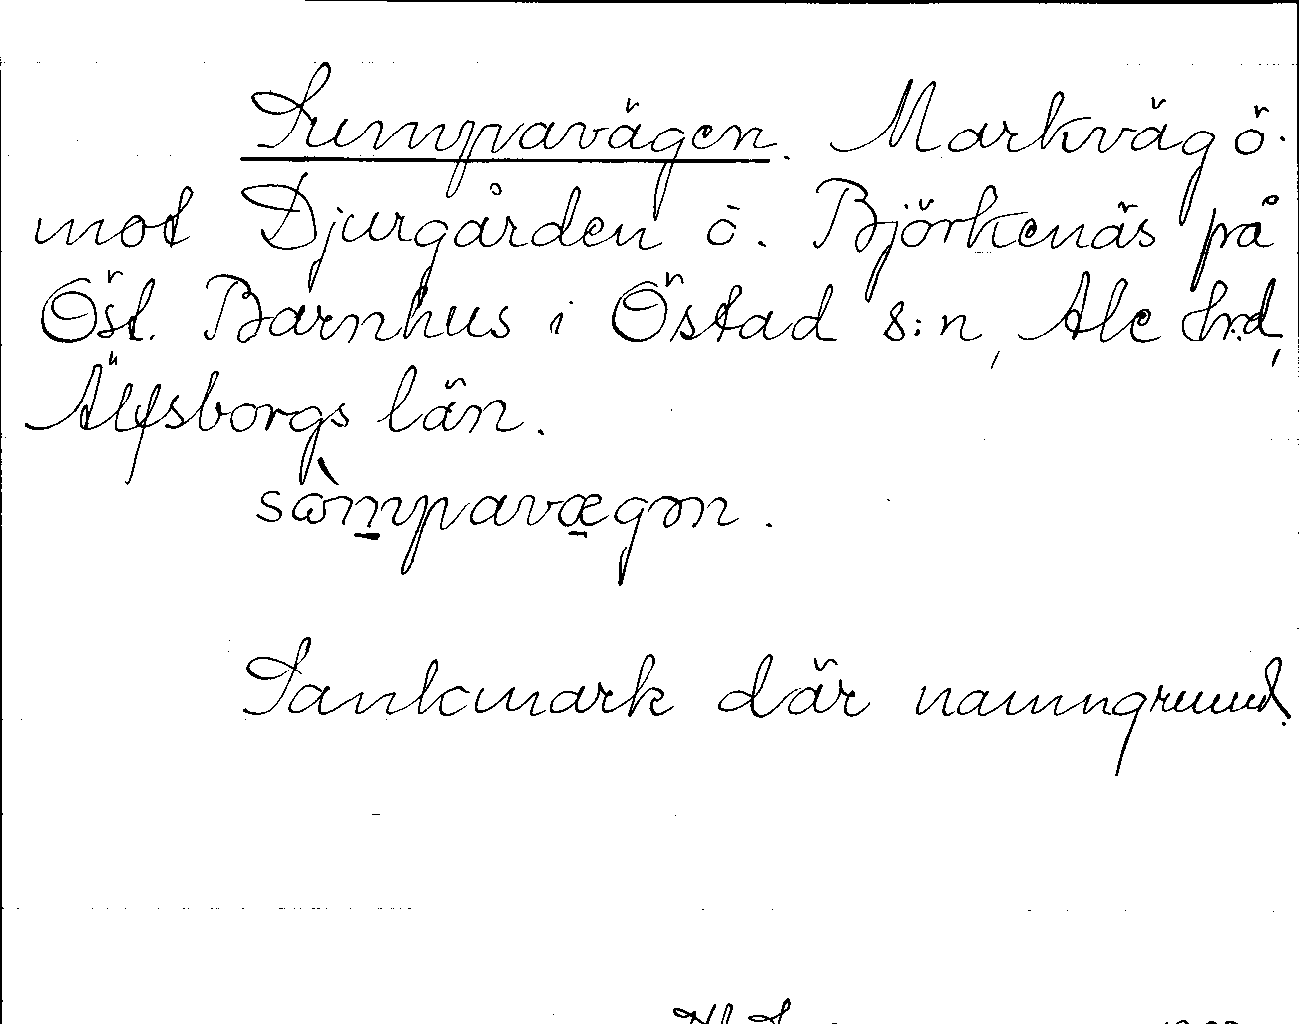 Sumpavägen. Markväg ö.
mot Djurgården ö. Björkenäs på
Öst. Barnhus i Östad s:n, Ale hrd,
Älfsborgs län.
sòm̲pavæ̲gən.
Sankmark där namngrund.